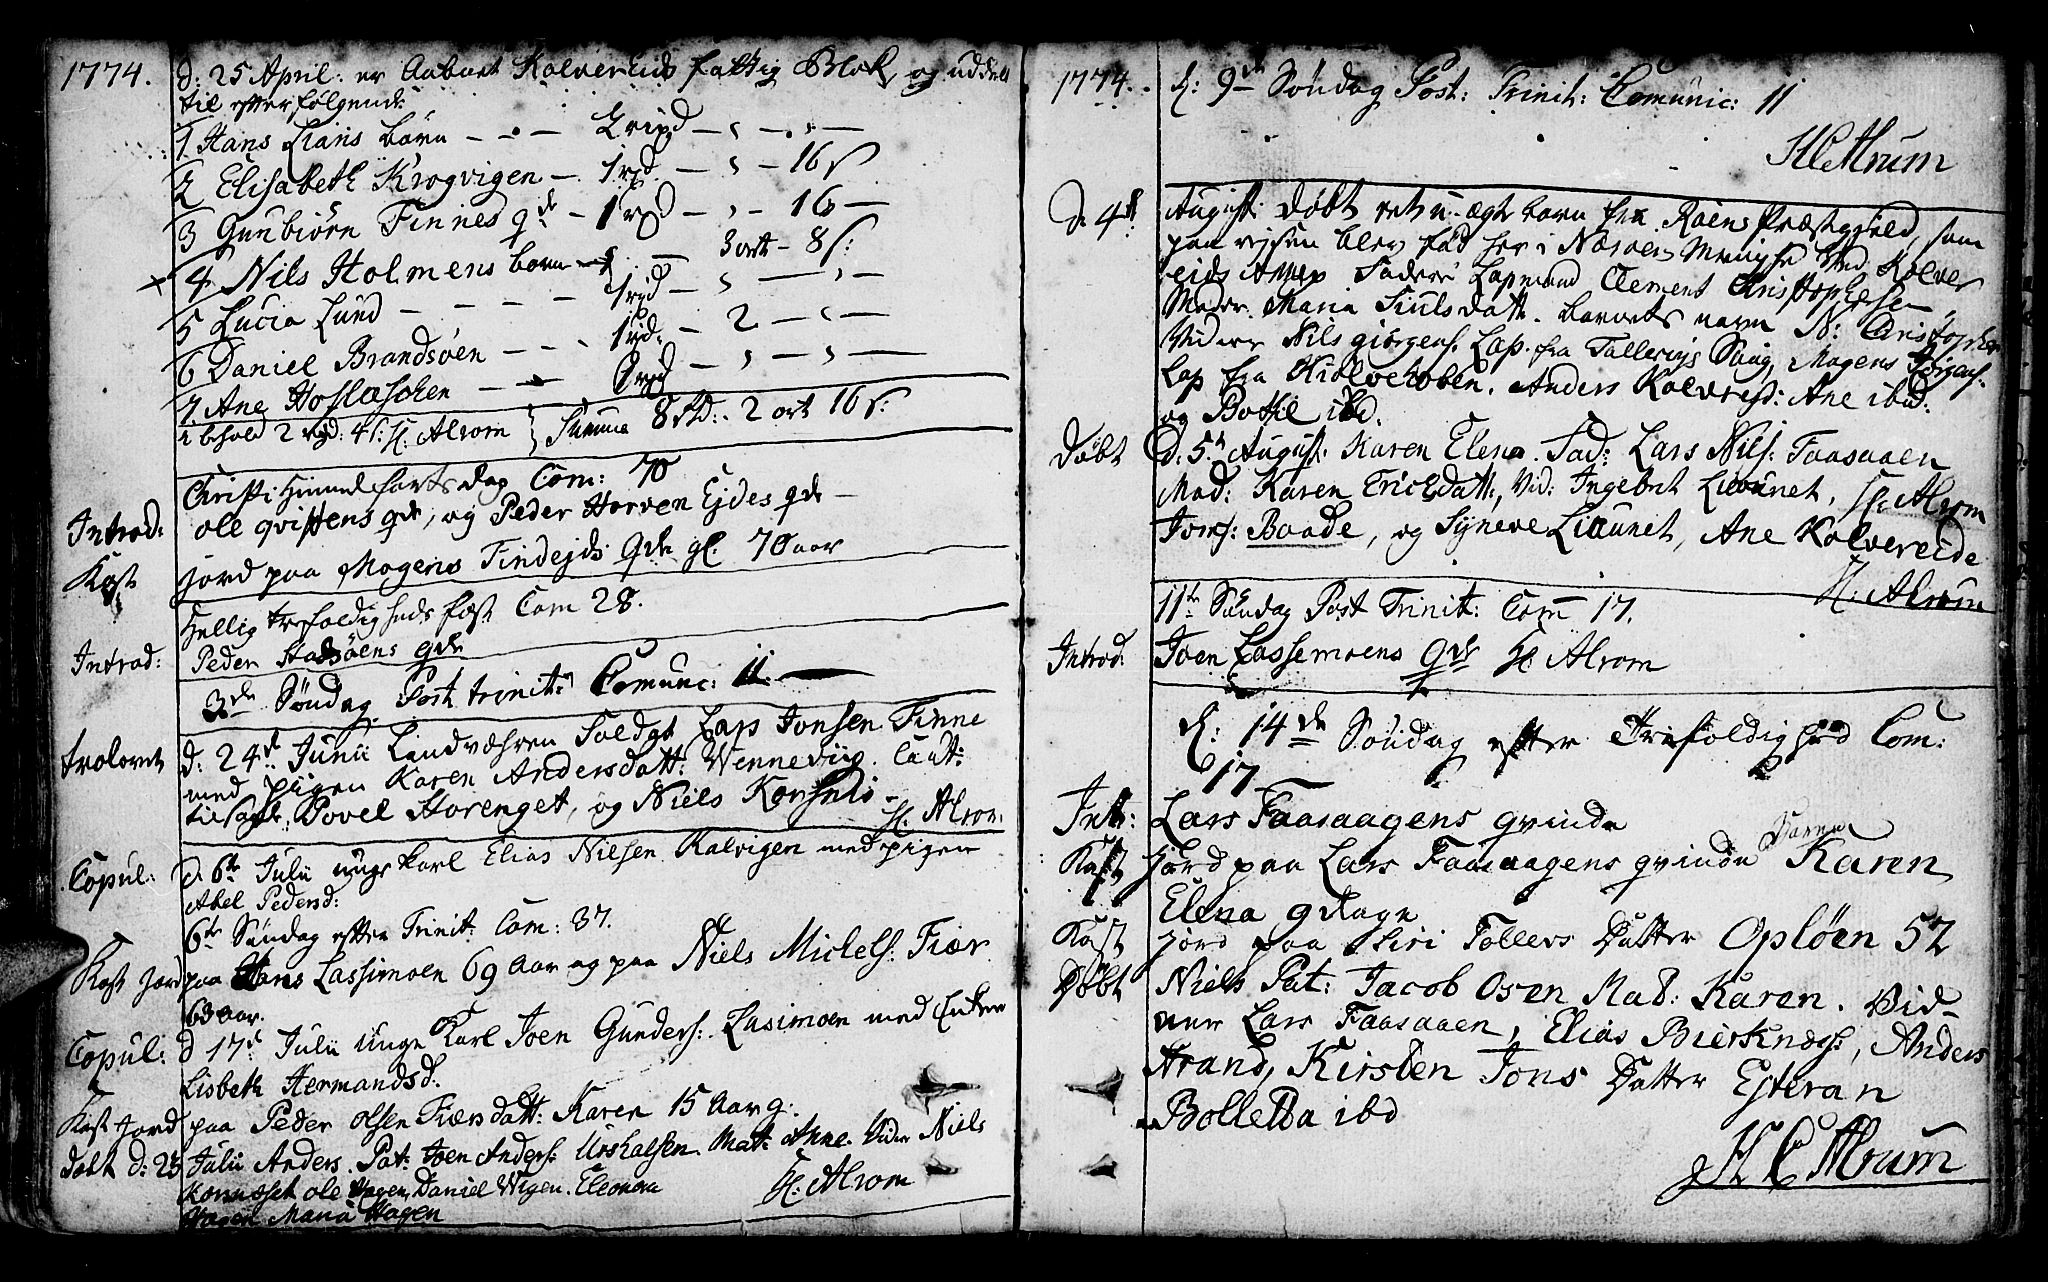 1774.
d: 25 April: er Aabnet Kolvereids fattig Blok, og uddelt
til efterfølgende:
1 Hans Lians børn - . - 2 rixd - , - . , -
2 Elisabeth Krogvigen - 1 rixd - , - 16 s
3 Gunbiørn Finnes qde - 1 rixd - , - 16 -
4 Nils Holmens børn - 3 ort - 8 s:
5 Lucia Lund - - - - 1 rixd - , - , -
6 Daniel Brandsøen - - - 1 rixd. - 2 - , -
7. Ane Hoslaschen - - - 2 rixd - , - , -
i behold 2 rixd: 4 s: H. Alrom } Summa 8 Rd: . 2 ort 16 s:
Christi Himmelfarts dag Com: 70
Introd: ole qvistens qde, og Peder Horven Ejdes qde -
Kast jord paa Mogens Findejds Qde gl. 70 aar
Hellig trefoldigheds fæst Com 28.
Introd: Peder Stadsøens qde
3de Søndag Post trinit: Comunic: 11.
trolovet d: 24de Junii Landværen Soldat Lars Jonsen Finne
med pigen Karen Andersdatt: Wennevüg. Caut:
tilsagde. Povel Horenget, og Niels Konsmo - H. Alrom.
Copul: d. 6te Julii unge karl Elias Nilsen Kalvigen med pigen
Abel Pedersd:
6te Søndag efter Trinit. Com: 37.
Kast jord paa Hans Lassimoen 69 aar og paa Niels Michels: Fiær
63 aar.
Copul: d 17de Julii unge Karl Joen Gunders: Lasimoen med Enken
Lisbeth Hermandsd.
Kast jord paa Peder olsen Fiærs datt: Karen 15 aar g:
døbt d: 23 Julii Anders. Pat: Joen Anders: Urskalsen. Mat: Anne. Vidn Niels
Kornæset ole Hagen, Daniel Wigen. Eleonora H. Alrom
Hagen Maria Hagen
1774. d: 9de Søndag Post: Trinit: Comunic: 11
HC Alrum
d. 4de Augusti døbt et u-ægte barn fra Roens Præstegjeld, som
paa rejsen blev fød her i Nærøes Menighed ved Kolver
ejds Fader Lapmand Clement Christophersen
Moder Maria Siulsdatt. barnets navn N: Christopher
Vidner Nils giørgens. Lap. fra Tollervigs Vaag, Mogens Jørgens.
Lap fra Kiolvehoben. Anders Kolvereid: Ane ibid:
og Bothil ibid.
Døbt d. 5te August: Karen Elena. Fad: Lars Nils: Faasaaen
Mod: Karen Ericksdatt:, Vid: Ingebret Liounet, H: Alrom
Jons: Baade, og Syneve Liounet, Ane Kolvereide
H: Alrom
11te Søndag Post Trinit: Com 17.
Introd: Joen Lassemoens Qde H: Alrom
d: 14de Søndag efter Trefoldighed Com:
17
Int: Lars Faasaagens qvinde
Kast jord paa Lars Faasaagens qvinde Karen
Elena 9 dage
Kast jord paa Siri Tollers Datter Opløen 52
Døbt Niels Pat: Jacob Osen Mat: Karen. Vid-
ner Lars Faasaaen, Elias Bierknæs:, Anders
Strand, Kirsten Jons Datter Esteran
Bolletta ibd
HC Alrum